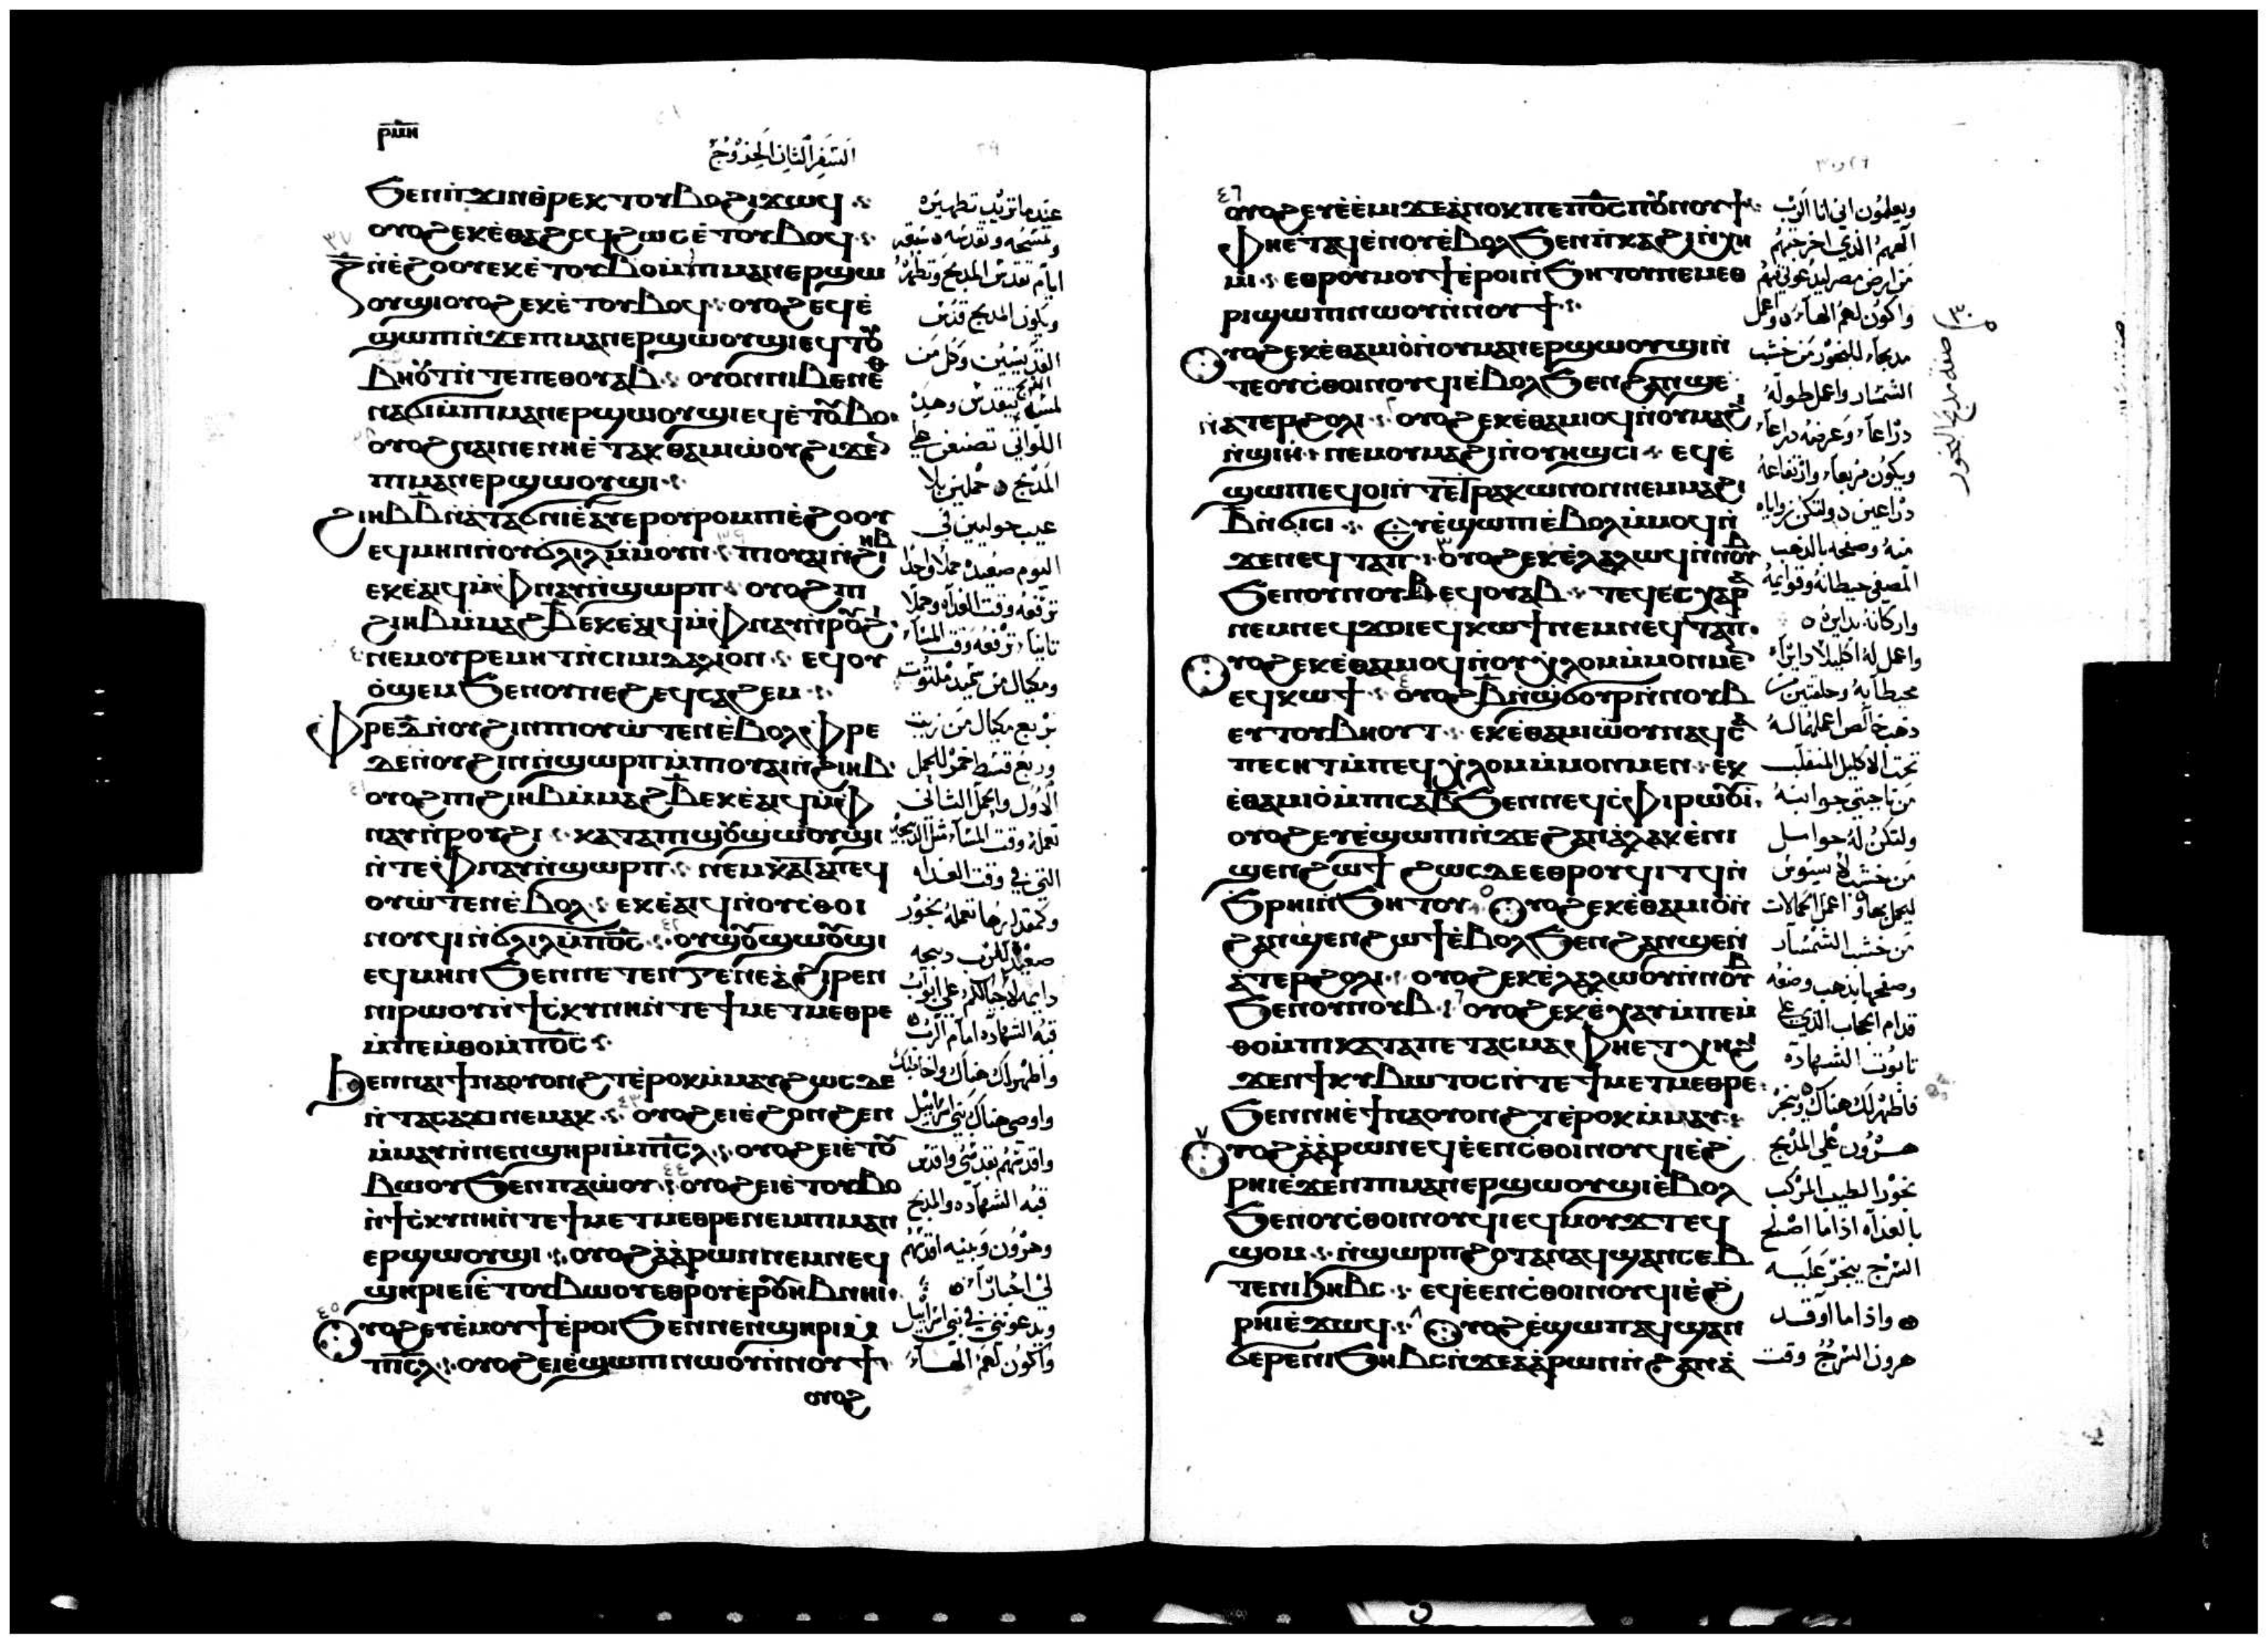 ⲣⲙⲏ
السفر الثاني الخروج
ϧⲉⲛⲡϫⲓⲛⲑⲣⲉⲕⲧⲟⲩⲃⲟϩⲓϫⲱϥ
ⲟⲩⲟϩⲉⲕⲉ̀ⲑⲁϩⲥϥϩⲱⲥⲉ̀ⲧⲟⲩⲃⲟϥ
ⲍ̅ⲛⲉ̀ϩⲟⲟⲩⲉⲕⲉ̀ⲧⲟⲩⲃⲟⲙ̀ⲡⲓⲙⲁⲛⲉⲣϣⲱ
ⲟⲩϣⲓⲟⲩⲟϩⲉⲕⲉ̀ⲧⲟⲩⲃⲟϥ ⲟⲩⲟϩⲉϥⲉ̀
ϣⲱⲡⲓⲛ̀ϫⲉⲡⲓⲙⲁⲛⲉⲣϣⲱⲟⲩϣⲓⲉϥⲧⲟⲩ
ⲃⲏⲟⲩⲧⲛ̀ⲧⲉⲡⲉⲑⲟⲩⲁⲃ ⲟⲩⲟⲛⲛⲓⲃⲉⲛⲉⲑ
ⲛⲁϭⲓⲙ̀ⲡⲓⲙⲁⲛⲉⲣϣⲱⲟⲩϣⲓⲉϥⲉ̀ⲧⲟⲩⲃⲟ
ⲟⲩⲟϩⲛⲁⲓⲛⲉⲛⲏⲉ̀ⲧⲁⲕⲑⲁⲙⲓⲱ̀ⲟⲩϩⲓϫⲉⲛ
ⲡⲓⲙⲁⲛⲉⲣϣⲱⲟⲩϣⲓ
ϩⲓⲏⲃⲃ̅ⲛ̀ⲁⲧⲁϭⲛⲓⲉ̀ⲁⲩⲉⲣⲟⲩⲣⲟⲙⲡⲓⲉ̀ϩⲟⲟⲩ
ⲉϥⲙⲏⲛⲛ̀ⲟⲩϭⲗⲓⲗⲙ̀ⲙⲟⲩⲛ ⲡⲓⲟⲩⲁⲓⲛ̀ϩⲓⲏⲃ
ⲉⲕⲉ̀ⲁⲓϥⲙ̀ⲫⲛⲁⲩⲛ̀ϣⲱⲣⲡ ⲟⲩⲟϩⲡⲓ
ϩⲓⲏⲃⲙ̀ⲙⲁϩⲃ̅ⲉⲕⲉ̀ⲁⲓϥⲙ̀ⲫⲛⲁⲩⲛ̀ⲣⲟⲩϩⲓ
ⲛⲉⲙⲟⲩⲣⲉⲙⲏⲧⲛ̀ⲥⲓⲙⲓⲇⲁⲗⲓⲟⲛ ⲉϥⲟⲩ
ⲟ̀ϣⲉⲙϧⲉⲛⲟⲩⲛⲉϩⲉϥⲥⲁϩⲉⲙ
ⲫⲣⲉⲇ̅ⲛ̀ⲟⲩϩⲓⲛⲡⲓⲟⲩⲱ̀ⲧⲉⲛⲉ̀ⲃⲟⲗⲫⲣⲉ
ⲇⲉⲛ̀ⲟⲩϩⲓⲛⲛ̀ϣⲱⲣⲡⲙ̀ⲡⲓⲟⲩⲁⲓⲛ̀ϩⲓⲏⲃ
ⲟⲩⲟϩⲡⲓϩⲓⲏⲃⲙ̀ⲙⲁϩⲃ̅ⲉⲕⲉ̀ⲁⲓϥⲙ̀ⲫ
ⲛⲁⲩⲛ̀ⲣⲟⲩϩⲓ ⲕⲁⲧⲁⲡⲓϣⲟⲩϣⲱⲟⲩϣⲓ
ⲛ̀ⲧⲉⲫⲛⲁⲩⲛ̀ϣⲱⲣⲡ ⲛⲉⲙⲕⲁⲧⲁⲡⲉϥ
ⲟⲩⲱ̀ⲧⲉⲛⲉ̀ⲃⲟⲗ ⲉⲕⲉ̀ⲁⲓϥⲛ̀ⲟⲩⲥⲑⲟⲓ
ⲛⲟⲩϥⲓⲛ̀ϭⲗⲓⲗⲙ̀ⲡⲟ̅ⲥ̅ ⲟⲩϣⲟⲩϣⲱⲟⲩϣⲓ
ⲉϥⲙⲏⲛϧⲉⲛⲛⲉⲧⲉⲛϫⲉⲛⲉⲁ̀ϩⲓⲣⲉⲛ
ⲛⲓⲣⲱⲟⲩⲛ̀ϯⲥⲕⲩⲛⲏⲛ̀ⲧⲉϯⲙⲉⲧⲙⲉⲑⲣⲉ
ⲙ̀ⲡⲉⲙⲑⲟⲙ̀ⲡⲟ̅ⲥ̅
ϧⲉⲛⲛⲁⲓϯⲛⲁⲟⲩⲟⲛϩⲧⲉⲣⲟⲕⲙ̀ⲙⲁⲩϩⲱⲥⲇⲉ
ⲛ̀ⲧⲁⲥⲁϫⲓⲛⲉⲙⲁⲕ ⲟⲩⲟϩⲉⲓⲉ̀ϩⲟⲛϩⲉⲛ
ⲙ̀ⲙⲁⲩⲛ̀ⲛⲉⲛϣⲏⲣⲓⲙ̀ⲡⲓⲥ̅ⲗ̅ ⲟⲩⲟϩⲉⲓⲉ̀ⲧⲟⲩ
ⲃⲱⲟⲩϧⲉⲛⲡⲁⲱ̀ⲟⲩ ⲟⲩⲟϩⲉⲓⲉ̀ⲧⲟⲩⲃⲟ
ⲛ̀ϯⲥⲕⲩⲛⲏⲛ̀ⲧⲉϯⲙⲉⲧⲙⲉⲑⲣⲉⲛⲉⲙⲡⲓⲙⲁⲛ
ⲉⲣϣⲱⲟⲩϣⲓ ⲟⲩⲟϩⲁ̀ⲁ̀ⲣⲱⲛⲛⲉⲙⲛⲉϥ
ϣⲏⲣⲓⲉⲓⲉ̀ⲧⲟⲩⲃⲱⲟⲩⲉⲑⲣⲟⲩⲉ̀ⲣⲟⲩⲏⲃⲛⲏⲓ
ⲟⲩⲟϩⲉⲩⲉ̀ⲙⲟⲩϯⲉ̀ⲣⲟⲓϧⲉⲛⲛⲉⲛϣⲏⲣⲓⲙ̀
ⲡⲓⲥ̅ⲗ̅ ⲟⲩⲟϩⲉⲓⲉ̀ϣⲱⲡⲓⲛⲱⲟⲩⲛ̀ⲛⲟⲩϯ
ⲟⲩⲟϩ
عندما تزكيب تطهيره
وتمسحه وتقدسه ٥ سبعة
ايام تقدس المذبح وتطهره
ويكون المذبح قدس
القديسين وكل من
لمس المذبح يتقدس وهذه
اللواتي تصنعهن على
المذبح ٥ حملين بلا
عيب حوليين في
اليوم صعيده حملا واحدا
ترفعه وقت الغداه وحملا
ثانيا ترفعه وقت المساء
ومكيال من سميد ملتوت
بربع مكيال من زيت
وربع قسط خمر للحمل
الاول والحمل الثاني
تعمله وقت المساء مثل الذبيحه
التي في وقت الغداه
وكمقدارها تعمله بخور
صعيده للرب ذبيحه
دايمه لاجيالكم على ابواب
قبة الشهاده امام الرب
واظهر لك هناك واخاطبك
واوصي هناك بني اسراييل
واقدسهم بقدسي واقدس
قبة الشهاده والمذبح
وهرون وبنيه اقدسهم
لي احبارا
ويدعونني في بني اسراييل
واكون لهم الهاء
٤٦
ⲟⲩⲟϩⲉⲩⲉ̀ⲉ̀ⲙⲓϫⲉⲁ̀ⲛⲟⲕⲡⲉⲡⲟ̅ⲥ̅ⲡⲟⲩⲛⲟⲩϯ
ⲫⲏⲉ̀ⲧⲁϥⲉ̀ⲛⲟⲩⲉ̀ⲃⲟⲗϧⲉⲛⲡ̀ⲕⲁϩⲓⲛ̀ⲭⲏ
ⲙⲓ ⲉⲑⲣⲟⲩⲙⲟⲩϯⲉ̀ⲣⲟⲓⲛ̀ϧⲏⲧⲟⲩⲛⲉⲙⲉⲑ
ⲣⲓϣⲱⲡⲓⲛⲱⲟⲩⲛ̀ⲛⲟⲩϯ
ⲟⲩⲟϩⲉⲕⲉ̀ⲑⲁⲙⲓⲟ̀ⲛ̀ⲟⲩⲙⲁⲛⲉⲣϣⲱⲟⲩϣⲓⲛ̀
ⲧⲉⲟⲩⲥⲑⲟⲓⲛⲟⲩϥⲓⲉ̀ⲃⲟⲗϧⲉⲛϩⲁⲛϣⲉ
ⲛ̀ⲁⲧⲉⲣϩⲟⲗⲓ ⲟⲩⲟϩⲉⲕⲉ̀ⲑⲁⲙⲓⲟϥⲛ̀ⲟⲩⲙⲁϩⲓ
ⲛ̀ϣⲓⲏ ⲛⲉⲙⲟⲩⲙⲁϩⲓⲛ̀ⲟⲩⲏϣⲥⲓ ⲉϥⲉ̀
ϣⲱⲡⲓⲉϥⲟⲓⲛ̀ⲧⲉⲧⲣⲁⲕⲱⲛⲟⲛⲛⲉⲙⲙⲁϩⲓ
ⲃ̅ⲛ̀ϭⲓⲥⲓ ⲉⲩⲉ̀ϣⲱⲡⲓⲉ̀ⲃⲟⲗⲙ̀ⲙⲟϥⲛ̀
ϫⲉⲛⲉϥⲧⲁⲡ ⲟⲩⲟϩⲉⲕⲉ̀ⲗⲁⲗⲱϥⲛ̀ⲛⲟⲩⲃ
ϧⲉⲛⲟⲩⲛⲟⲩⲃⲉϥⲟⲩⲁⲃ ⲧⲉϥⲉⲥⲭⲁⲣⲁ
ⲛⲉⲙⲛⲉϥϫⲟⲓⲉϥⲕⲱϯⲛⲉⲙⲛⲉϥⲧⲁⲡ
ⲟⲩⲟϩⲉⲕⲉ̀ⲑⲁⲙⲓⲟϥⲛ̀ⲟⲩⲭⲗⲟⲙⲙ̀ⲙⲟⲛⲙⲉⲛ
ⲉϥⲕⲱϯ ⲟⲩⲟϩⲃ̅ⲛ̀ϣϭⲟⲩⲣⲛ̀ⲛⲟⲩⲃ
ⲉⲩⲧⲟⲩⲃⲏⲟⲩⲧ ⲉⲕⲉ̀ⲑⲁⲙⲓⲱ̀ⲟⲩⲛⲁϥⲥⲁ
ⲡⲉⲥⲏⲧⲙ̀ⲡⲉϥⲭⲗⲟⲙⲙ̀ⲙⲟⲛⲙⲉⲛ ⲉⲕ
ⲉ̀ⲑⲁⲙⲓⲟ̀ⲙ̀ⲡⲓⲥⲁⲃ̅ϧⲉⲛⲛⲉϥⲥⲫⲓⲣⲱⲟⲩⲓ
ⲟⲩⲟϩⲉⲩⲉ̀ϣⲱⲡⲓⲛ̀ϫⲉϩⲁⲛⲁ̀ⲗⲁⲕⲉ̀ⲛⲓ
ϣⲉⲛϩⲱϯ ϩⲱⲥⲇⲉⲉⲑⲣⲟⲩϥⲓⲧϥⲛ̀
ϧⲣⲏⲓⲛ̀ϧⲏⲧⲟⲩ ⲟⲩⲟϩⲉⲕⲉ̀ⲑⲁⲙⲓⲟ̀ⲛ̀
ϩⲁⲛϣⲉⲛϩⲱϯⲉ̀ⲃⲟⲗϧⲉⲛϩⲁⲛϣⲉⲛ̀
ⲁ̀ⲧⲉⲣϩⲟⲗⲓ ⲟⲩⲟϩⲉⲕⲉ̀ⲗⲁⲗⲱⲟⲩⲛ̀ⲛⲟⲩⲃ
ϧⲉⲛⲟⲩⲛⲟⲩⲃ ⲟⲩⲟϩⲉⲕⲉ̀ⲭⲁⲩⲙ̀ⲡⲉⲙ̀
ⲑⲟⲙ̀ⲡⲓⲕⲁⲧⲁⲡⲉⲧⲁⲥⲙⲁⲫⲏⲉⲧⲭⲏϩⲓ
ϫⲉⲛϯⲕⲩⲃⲱⲧⲟⲥⲛ̀ⲧⲉϯⲙⲉⲧⲙⲉⲑⲣⲉ
ϧⲉⲛⲛⲏⲉ̀ϯⲛⲁⲟⲩⲟⲛϩⲧⲉ̀ⲣⲟⲕⲙ̀ⲙⲁⲩ
ⲟⲩⲟϩⲁ̀ⲁ̀ⲣⲱⲛⲉϥⲉ̀ⲉⲛⲥⲑⲟⲓⲛⲟⲩϥⲓⲉ̀ϩ
ⲣⲏⲓⲉ̀ϫⲉⲛⲡⲓⲙⲁⲛⲉⲣϣⲱⲟⲩϣⲓⲉ̀ⲃⲟⲗ
ϧⲉⲛⲟⲩⲥⲑⲟⲓⲛⲟⲩϥⲓⲉϥⲙⲟⲩϫⲧⲉϥ
ϣⲟⲙ ⲛ̀ϣⲱⲣⲡϩⲟⲧⲁⲛⲁϥϣⲁⲛⲥⲉⲃ
ⲧⲉⲛⲓϧⲏⲃⲥ ⲉϥⲉ̀ⲉⲛⲥⲑⲟⲓⲛⲟⲩϥⲓⲉ̀ϩ
ⲣⲏⲓⲉ̀ϫⲱϥ ⲟⲩⲟϩⲉ̀ϣⲱⲡⲁϥϣⲁⲛ
ϭⲉⲣⲉⲛⲓϧⲏⲃⲥⲛ̀ϫⲉⲁ̀ⲁ̀ⲣⲱⲛⲛ̀ϩⲁⲛⲁ̀
ويعلمون اني انا الرب
الههم الذي اخرجتهم
من ارض مصر ليدعوني لهم
واكون لهم الهاء ٥ واعمل
مذبحاء للبخور من خشب
الشمشار واعمل طوله
ذراعاء وعرضه ذراعاء
ويكون مربعاء وارتفاعه
ذراعين ٥ ولتكن زواياه
منه وصفحه بالذهب
المصفى حيطانه وقوايمه
واركانه بدايره ٥
واعمل له اكليلا دايراء
محيطا به وحلقتين من
ذهب خالص اعملهما له
تحت الاكليل المنقلب
من ناحيتي جوانبه
ولتكن له حواسل
من خشب لا يسوس
ليحمل بها واعمل الحمالات
من خشب الشمشار
وصفحها بذهب وضعه
قدام الحجاب الذي على
تابوت الشهاده
فاظهر لك هناك ويبخر
هرون على المذبح
بخور الطيب المركب
بالغداه اذا ما اصلح
السرج يبخر عليه
٥ واذا ما اوقد
هرون السرج وقت
صفة مذبح البخور